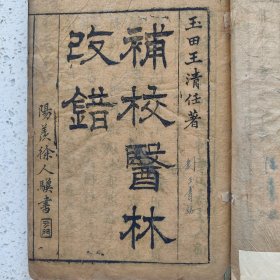 玉田王清任著
補校醫林
改錯
陽羨徐人驥書